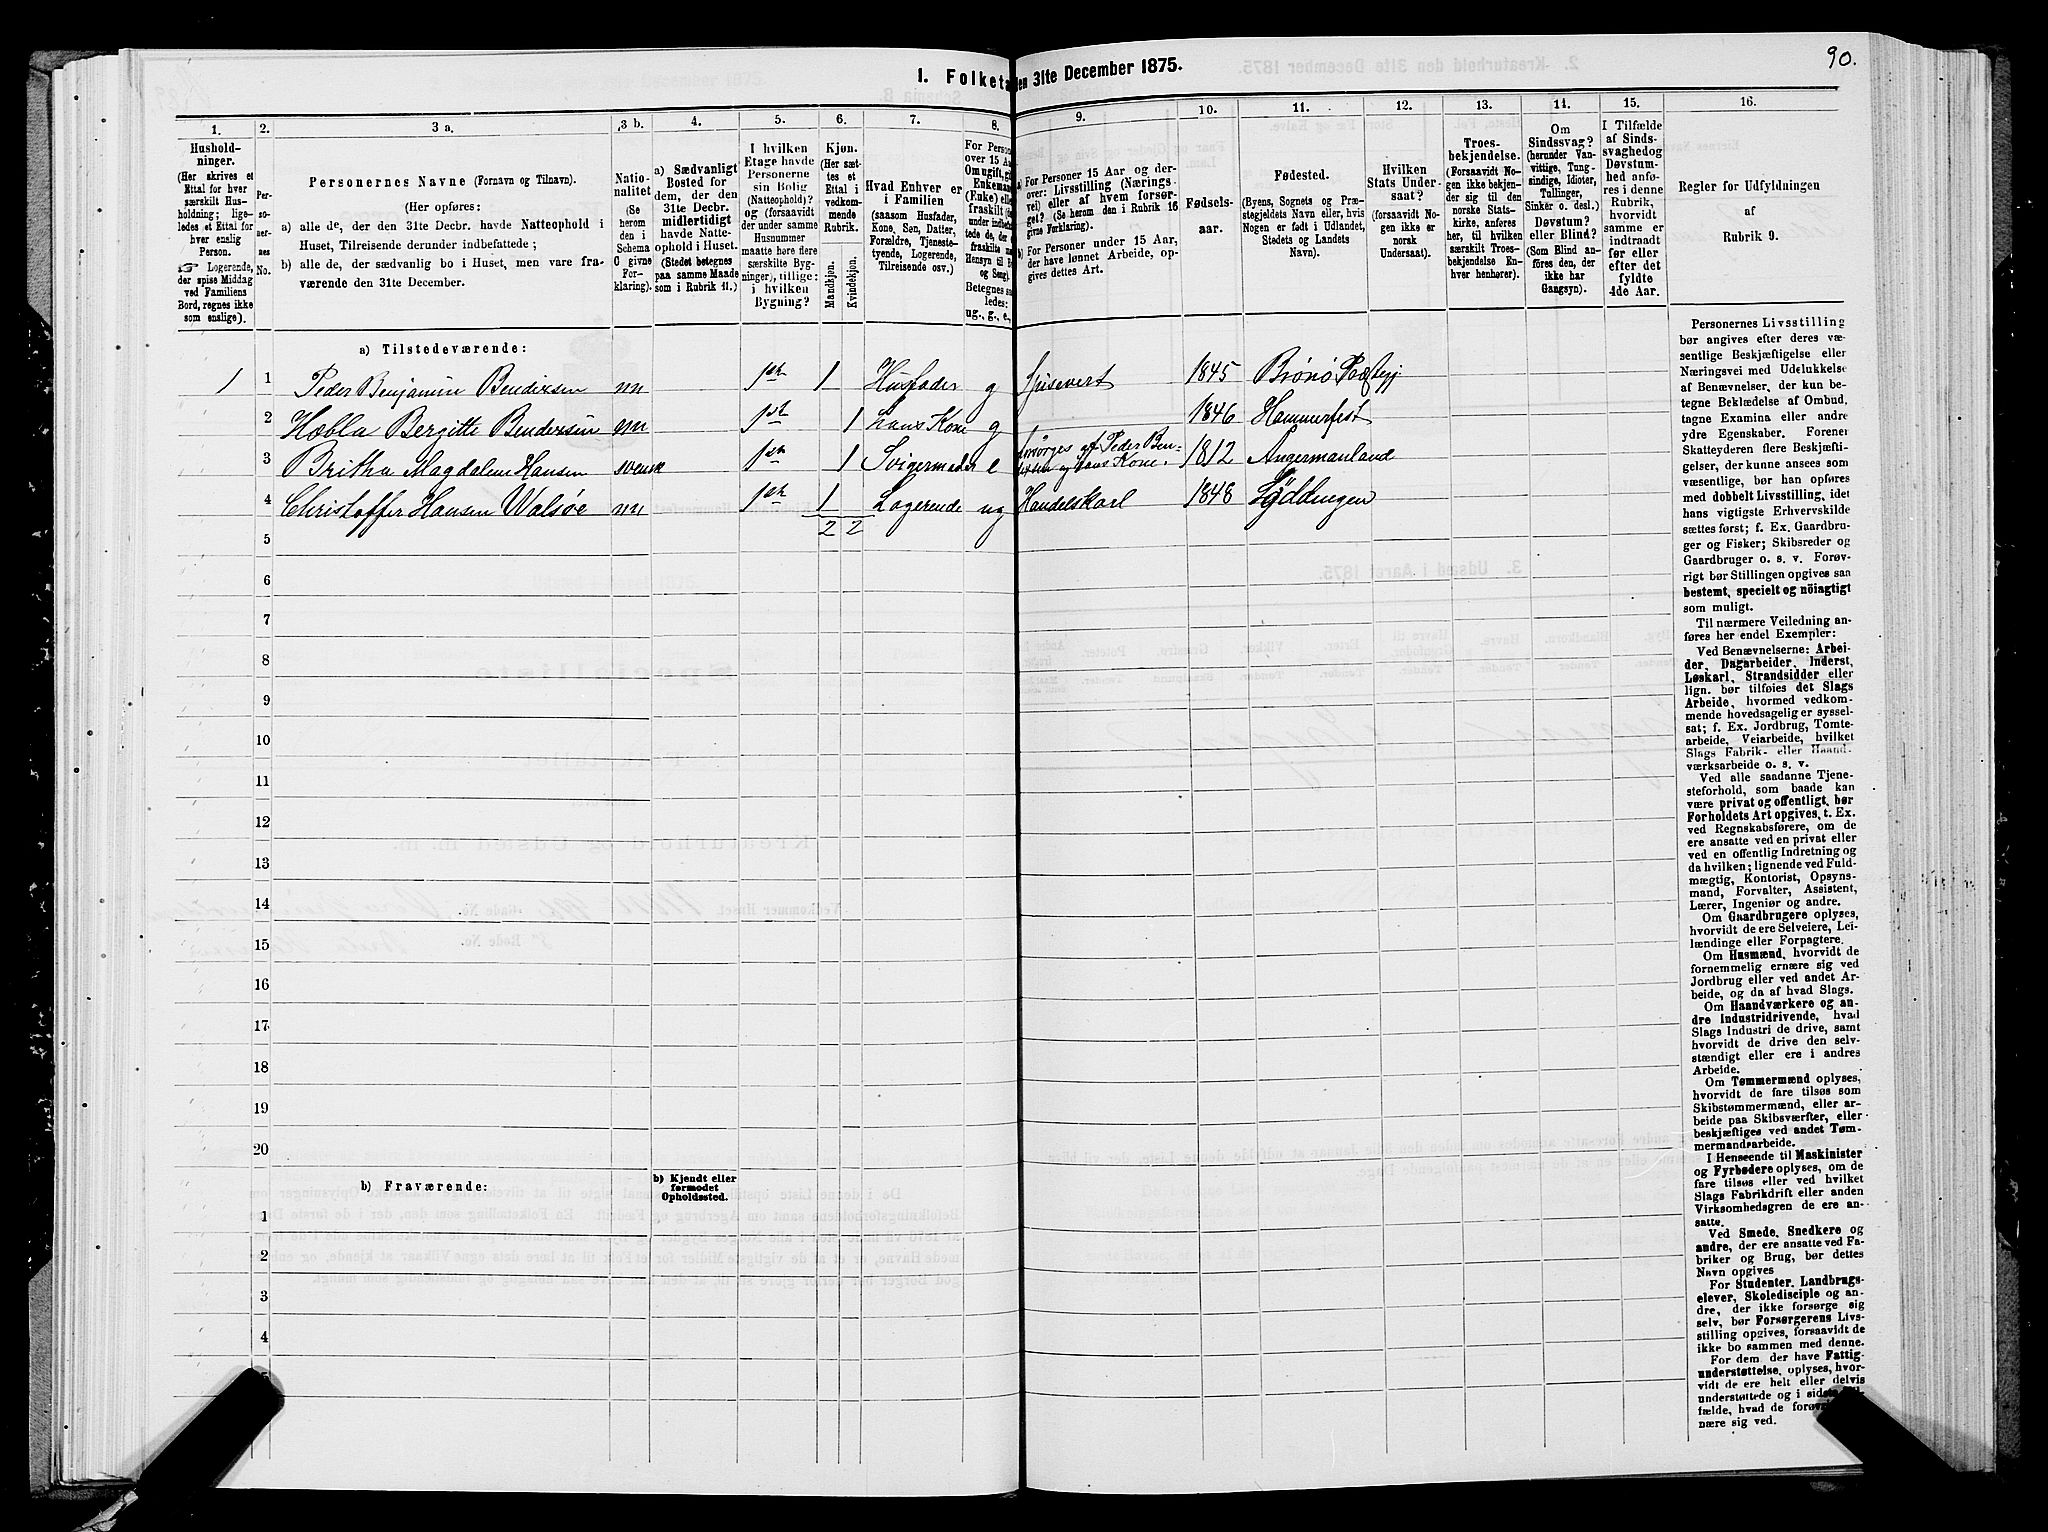 90.
1. Folketa
en 31te December 1875.
1.
2.
3 a.
3 b.
4.
5.
6.
7.
8.
9.
10.
11.
12.
13.
14.
15.
16.
Hushold-
ninger.
(Her skrives et
Ettal for hver
særskilt Hus-
holdning; lige-
ledes et Ettal for
hver enslig
Person.
☞ Logerende,
der spise Middag
ved Familiens
Bord, regnes ikke
som enslige).
Per-
so-
ner-
nes
No.
Personernes Navne (Fornavn og Tilnavn).
(Her opføres:
a) alle de, der den 31te Decbr. havde Natteophold i
Huset, Tilreisende derunder indbefattede;
b) alle de, der sædvanlig bo i Huset, men vare fra-
værende den 31te December.
Natio-
nalitet
(Se
herom
den i
Schema
C givne
For-
klaring).
a) Sædvanligt
Bosted for
dem, der den
31te Decbr.
midlertidigt
havde Natte-
ophold i Huset.
(Stedet betegnes
paa samme Maade
som i Rubrik 11.)
I hvilken
Etage havde
Personerne
sin Bolig
(Natteophold)?
og (forsaavidt
der under samme
Husnummer
maatte høre flere
særskilte Byg-
ninger), tillige:
i hvilken
Bygning?
Kjøn.
(Her sæt-
tes et
Ettal i
vedkom-
mende
Rubrik.
Mandkjøn.
Kvindekjøn.
Hvad Enhver er
i Familien
(saasom Husfader,
Kone, Søn, Datter,
Forældre, Tjeneste-
tyende, Logerende,
Tilreisende osv.)
For Perso
over 15 Aa
Om ugift, gi
Enkeman
(Enke) elle
fraskilt (
under indbe
tede de, de
fraskilte m
Hensyn til B
og Seng).
Betegnes sa
ledes:
ug., g., e.,
a) For Personer 15 Aar og der-
over: Livsstilling (Nærings-
vei) eller af hvem forsør-
get? (Se herom den i Rubrik 16
givne Forklaring).
b) For Personer under 15 Aar,
der have lønnet Arbeide, op-
gives dettes Art.
Fødsels-
aar.
Fødested.
(Byens, Sognets og Præ-
stegjeldets Navn eller, hvis
Nogen er født i Udlandet,
Stedets og Landets
Navn).
Hvilken
Stats Under-
saat?
(forsaavidt No-
gen ikke er
norsk
Undersaat).
Troes-
bekjendelse.
(Forsaavidt No-
gen ikke bekjen-
der sig til den
norske Stats-
kirke, anføres
her, til hvilken
særskilt Troes-
bekjendelse En-
hver henhører).
Om
Sindssvag?
(herunder Van-
vittige, Tung-
sindige, Idioter,
Tullinger,
Sinker o. desl.)
Døvstum?
eller Blind?
(Som Blind an-
føres den, der
ikke har
Gangsyn).
I Tilfælde
af Sinds-
svaghed og
Døvstum-
hed anfø-
res i denne
Rubrik,
hvorvidt
samme er
indtraadt
før eller
efter det
fyldte
4de Aar.
Regler for Udfyldningen
af
Rubrik 9.
a) Tilstedeværende:
1 1 Peder Benjamin Bendixsen nn 1st 1 Husfader g Huusvert 1845 Brønø Præstegj
2 Hæbla Bergitte Bendixsen nn 1st 1 hans Kone g 1846 Hammerfest
3 Britha Magdalene Hansen svensk 1st 1 Svigermoder e forsørges af Peder Ben-
dixsen og hans Kone. 1812 Angermanland
4 Christoffer Hansen Walsøe nn 1st 1 Logerende ug Handelskarl 1848 Lødingen
2 2
5
6
7
8
9
10
11
12
13
14
15
16
17
18
19
20
b) Fraværende:
b) Kjendt eller
formodet
Opholdssted.
1
2
3
4
Personernes Livsstilling
bør angives efter deres væ-
sentlige Beskjæftigelse eller
Næringsvei med Udelukkelse
af Benævnelser, der kun be-
tegne Beklædelse af Ombud,
tagne Examina eller andre
ydre Egenskaber. Forener
Skatteyderen flere Beskjæfti-
gelser, der kunne ansees som
væsentlige, bør han opføres
med dobbelt Livsstilling, idet
hans vigtigste Erhvervskilde
sættes først; f. Ex. Gaardbru-
ger og Fisker; Skibsreder og
Gaardbruger o. s. v. Forøv-
rigt bør Stillingen opgives saa
bestemt, specielt og nöiagtigt
som muligt.
Til nærmere Veiledning an-
føres her endel Exempler:
Ved Benævnelserne: Arbei-
der, Dagarbeider, Inderst,
Løskarl, Strandsidder eller
lign. bør tilføies det Slags
Arbeide, hvormed vedkom-
mende hovedsagelig er syssel-
sat; f. Ex. Jordbrug, Tomte-
arbeide, Veiarbeide, hvilket
Slags Fabrik- eller Haand-
værksarbeide o. s. v.
Ved alle saadanne Tjene-
steforhold, som baade kan
være privat og offentligt, bør
Forholdets Art opgives, t. Ex.
ved Regnskabsførere, om de
ere ansatte ved en privat eller
ved en offentlig Indretning og
da hvilken; lignende ved Fuld-
mægtig, Kontorist, Opsyns-
mand, Forvalter, Assistent,
Lærer, Ingeniør og andre.
Om Gaardbrugere oplyses,
hvorvidt de ere Selveiere, Lei-
lændinge eller Forpagtere.
Om Husmænd, hvorvidt de
fornemmelig ernære sig ved
Jordbrug eller ved andet Ar-
beide, og da af hvad Slags.
Om Haandværkere og an-
dre Industridrivende, hvad
Slags Industri de drive, samt
hvorvidt de drive den selv-
stændigt eller ere i andres
Arbeide.
Om Tømmermænd oplyses,
hvorvidt de fare tilsøs som
Skibstømmermænd, eller ar-
beide paa Skibsværfter, eller
beskjæftiges ved andet Tøm-
mermandsarbeide.
I Henseende til Maskinister
og Fyrbødere oplyses, om de
fare tilsøs eller ved hvilket
Slags Fabrikdrift eller anden
Virksomhedsgren de ere an-
satte.
Ved Smede, Snedkere og
andre, der ere ansatte ved Fa-
briker og Brug, bør dettes
Navn opgives
For Studenter, Landbrugs-
elever, Skoledisciple og an-
dre, der ikke forsørge sig
selv, bør Forsørgerens Livs-
stilling opgives, forsaavidt de
ikke bo sammen med denne.
For dem, der have Fattig-
understøttelse, oplyses, hvor-
vidt de ere helt eller delvis
understøttede og i sidste
fælde, hvad de forøv
nære sig ved.